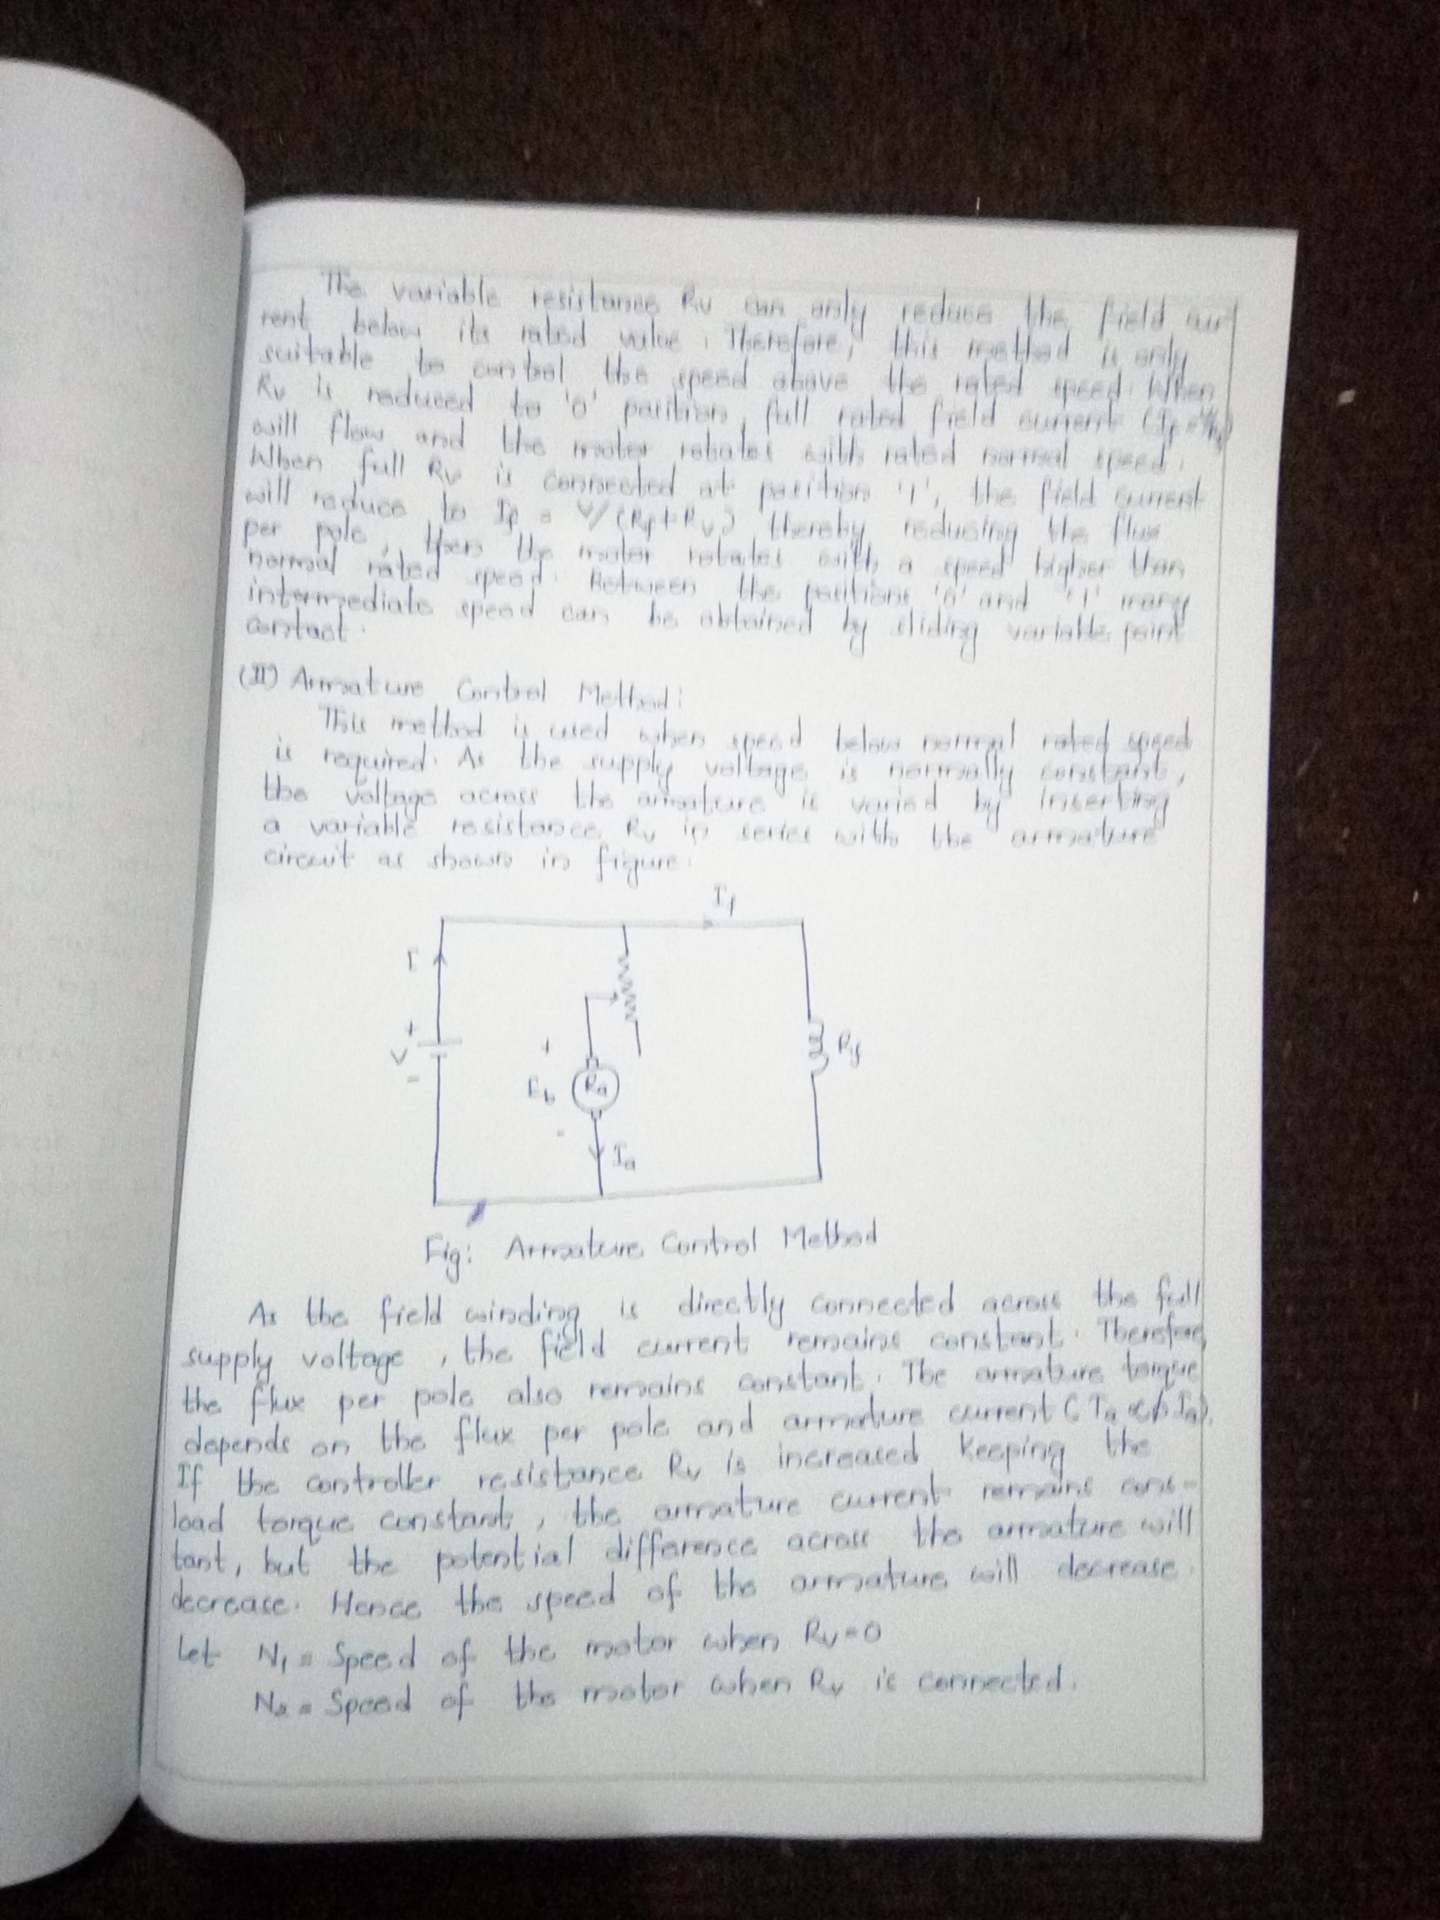 The variable resistance Rv can only reduce the field cur
rent below its rated value. Therefore, this method is only
suitable to control the speed above the rated speed. When
Rv is reduced to '0' position, full rated field current (If = V/Rf)
will flow and the motor rotates with rated normal speed.
When full Rv is connected at position '1', the field current
will reduce to If = V/(Rf+Rv) thereby reducing the flux
per pole, then the motor rotates with a speed higher than
normal rated speed. Between the positions '0' and '1' many
intermediate speed can be obtained by sliding variable point
contact.
(II) Armature Control Method:
This method is used when speed below normal rated speed
is required. As the supply voltage is normally constant,
the voltage across the armature is varied by inserting
a variable resistance Rv in series with the armature
circuit as shown in figure.
If
I
+
V
-
+
Eb
-
Ra
Ia
Rf
Fig: Armature Control Method
As the field winding is directly connected across the full
supply voltage, the field current remains constant. Therefore,
the flux per pole also remains constant. The armature torque
depends on the flux per pole and armature current (Ta ∝ ϕ Ia).
If the controller resistance Rv is increased keeping the
load torque constant, the armature current remains cons-
tant, but the potential difference across the armature will
decrease. Hence the speed of the armature will decrease.
Let N1 = Speed of the motor when Rv=0
N2 = Speed of the motor when Rv is connected.